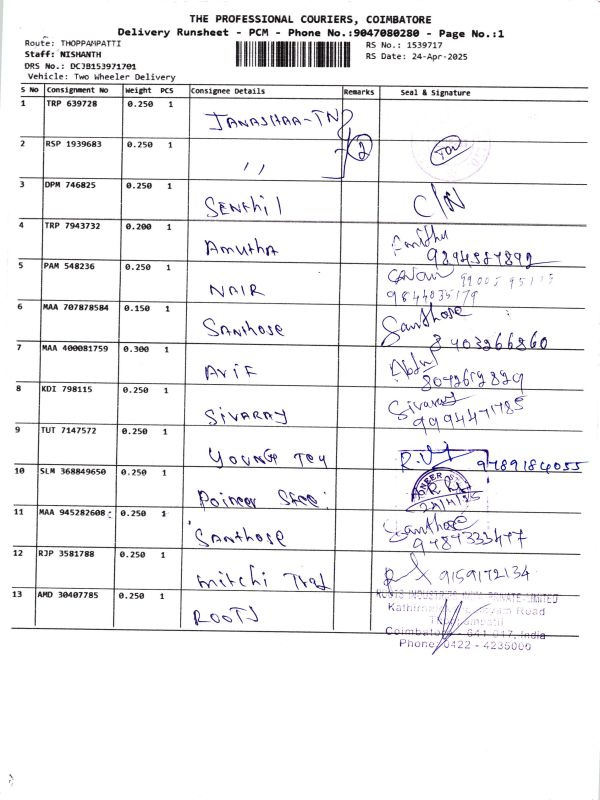 THE PROFESSIONAL COURIERS, COIMBATORE
Delivery Runsheet - PCM - Phone No.:9047080280 - Page No.:1
Route: THOPPAMPATTI RS No.: 1539717
Staff: NISHANTH RS Date: 24-Apr-2025
DRS No.: DCJB153971701
Vehicle: Two Wheeler Delivery
S No Consignment No Weight PCS Consignee Details Remarks Seal & Signature
1 TRP 639728 0.250 1 JANASHAA-TN
2 RSP 1939683 0.250 1 ,, 2
3 DPM 746825 0.250 1 SENthil C/N
4 TRP 7943732 0.200 1 Amutha
9894587892
5 PAM 548236 0.250 1 NAIR
9844035179
6 MAA 707878584 0.150 1 SANthose Santhose
8403266860
7 MAA 400081759 0.300 1 Arif Abdul
8072612829
8 KDI 798115 0.250 1 SIVARAJ Sivaraj
9994471785
9 TUT 7147572 0.250 1 YOUNG Toy 9789184055
10 SLM 368849650 0.250 1 Poineer Stee:
11 MAA 945282608 0.250 1 SANthose Santhose
9787333477
12 RJP 3581788 0.250 1 mitchi Trad 9159172134
13 AMD 30407785 0.250 1 ROOTS
Coimbatore - 641 017, India
Phone: 0422 - 4235000